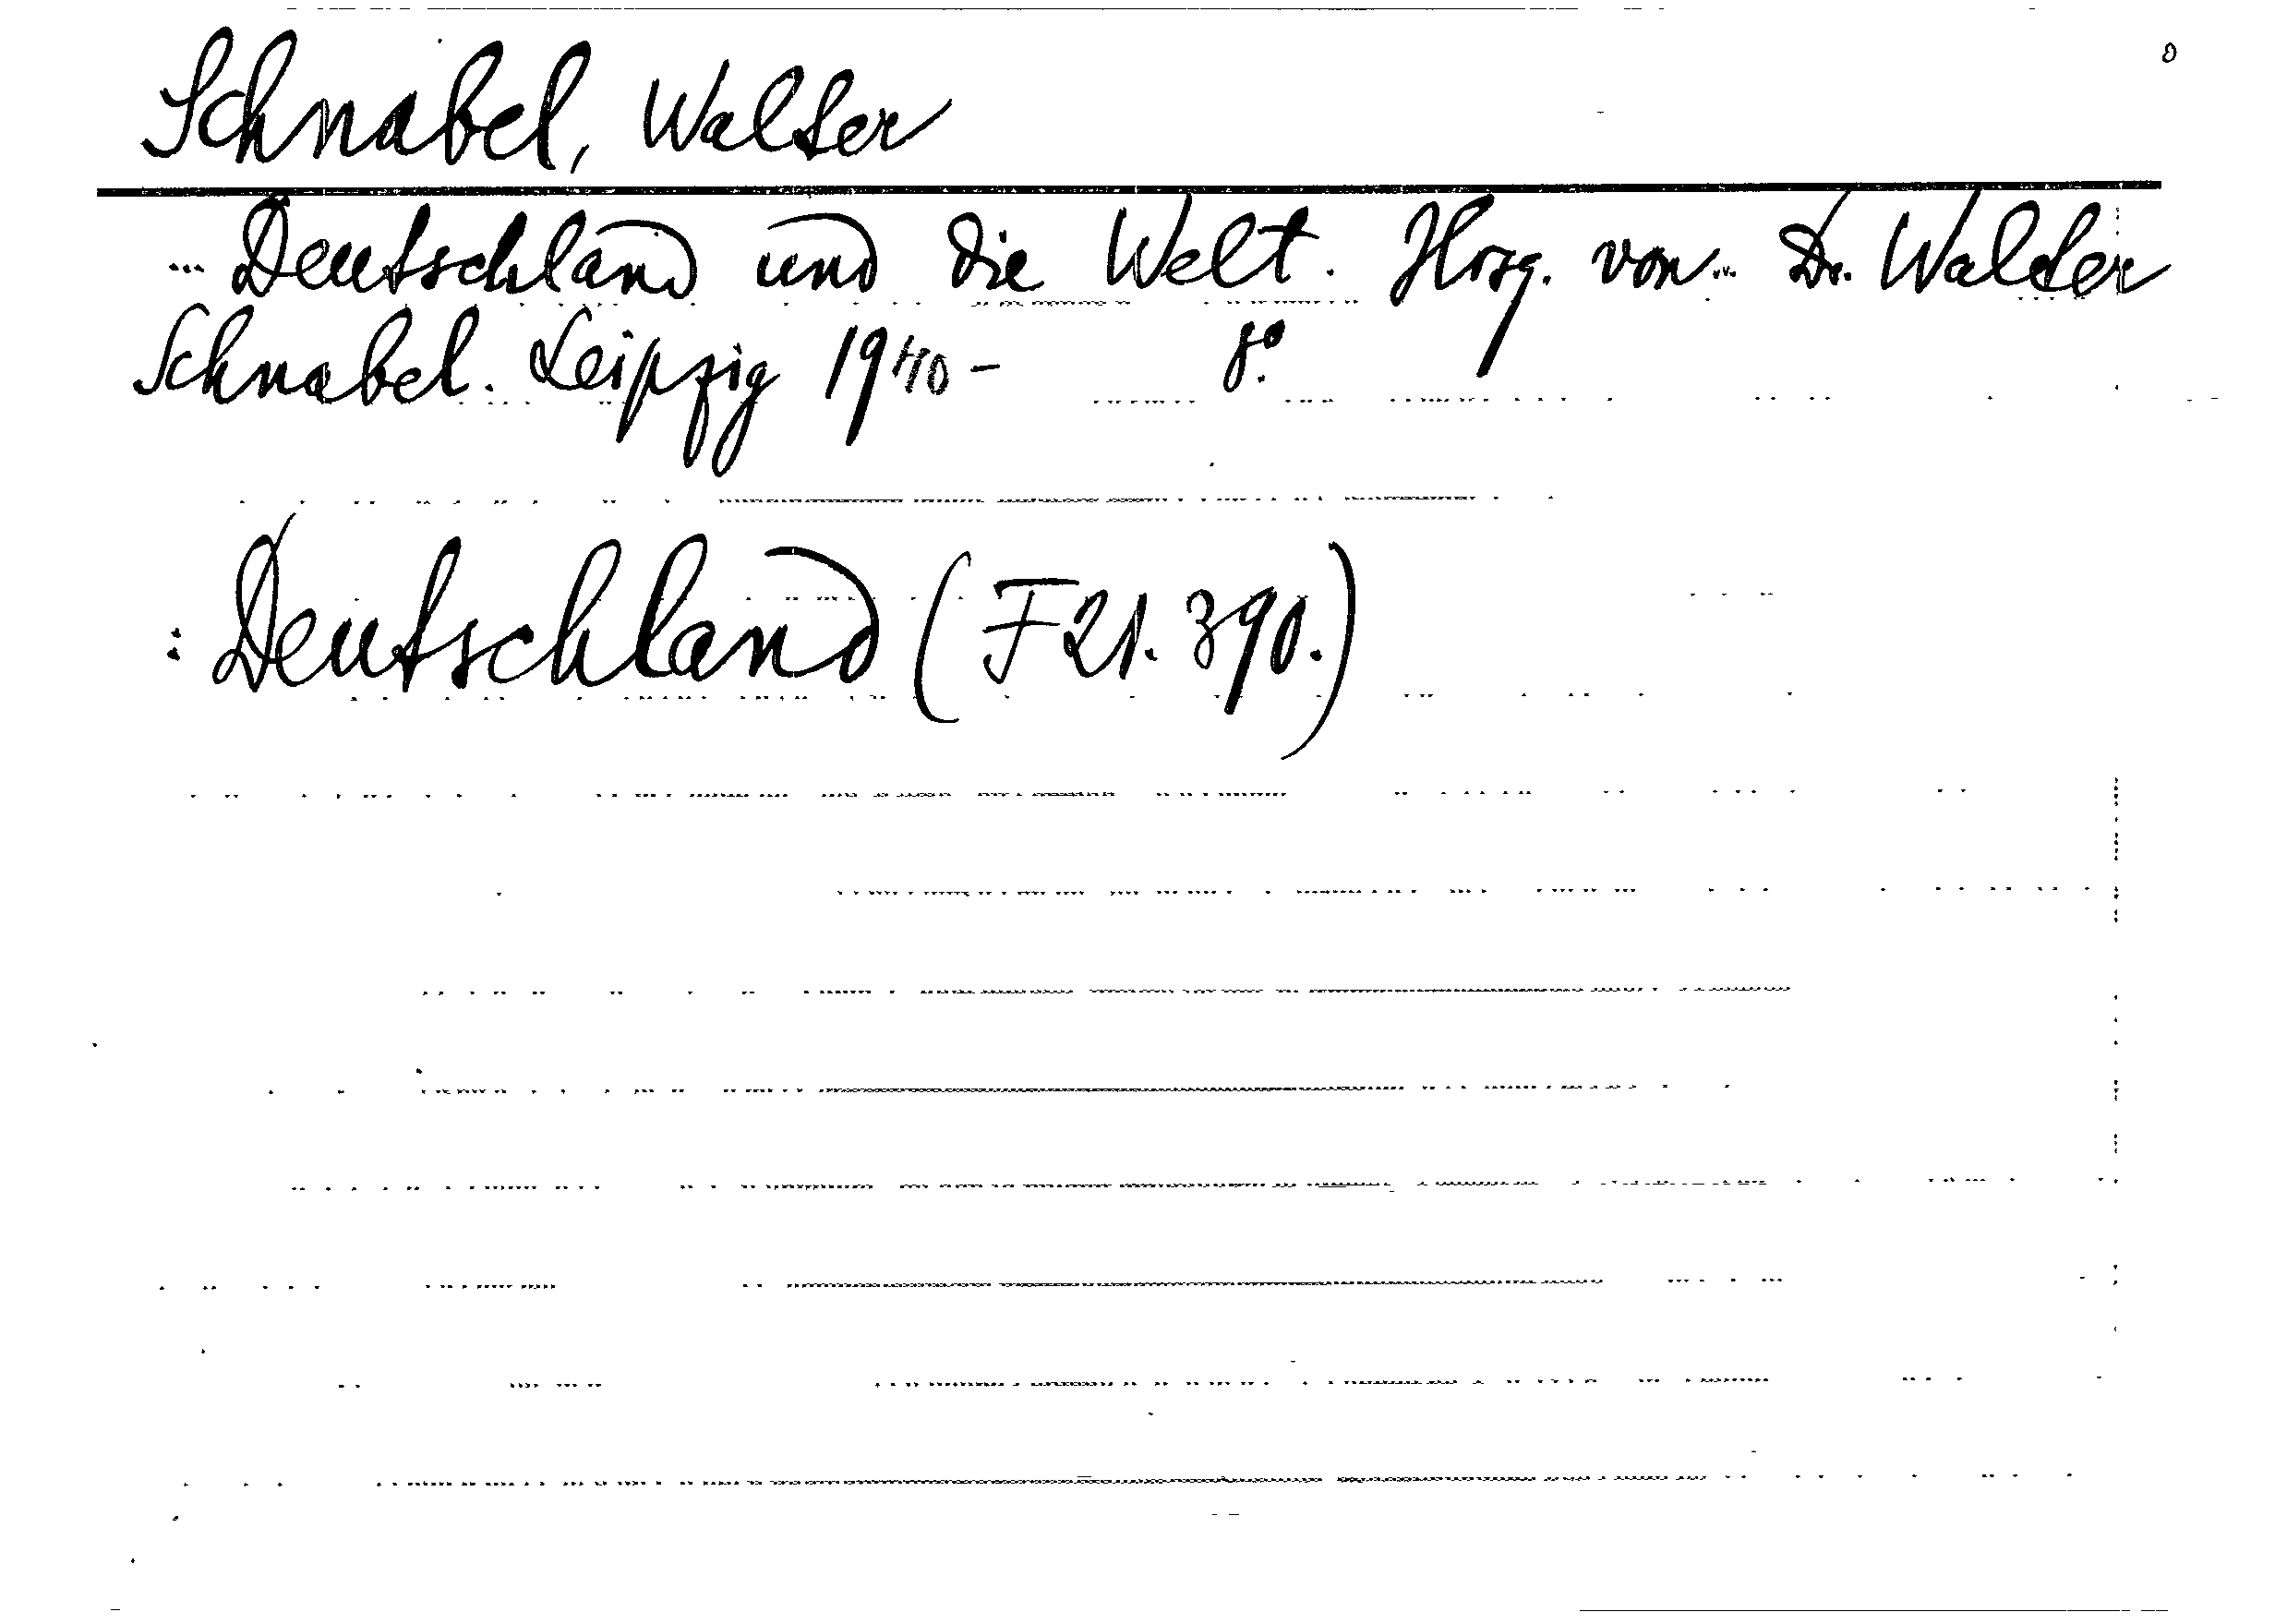 Schnabel, Walter
... Deutschland und die Welt. Hrsg. von... Dr. Walter
Schnabel. Leipzig 1940- 8°.
: Deutschland (F 21.390.)